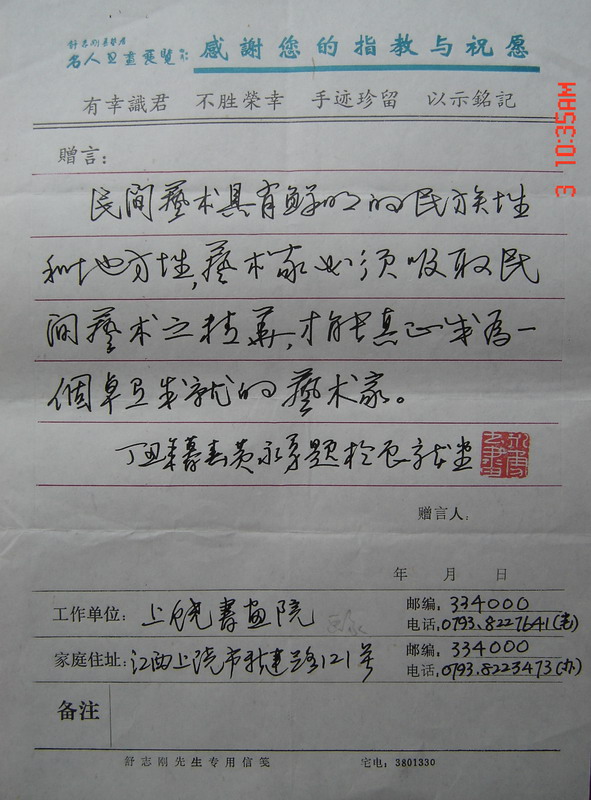 感謝您的指教与祝愿
有幸識君 不胜榮幸 手迹珍留 以示銘記
赠言：
民間藝术具有鲜明的民族性
和地方性,藝术家必须吸取民
間藝术之精華,才能真正成為一
個卓且成就的藝术家。
丁丑年暮春黄永勇题於
赠言人:
年 月 日
工作单位: 上饶書画院
邮编: 334000
电话:0793.8227641(宅)
家庭住址: 江西上饶市 路121号
邮编: 334000
电话:0793.8223473(办)
备注
舒志刚先生专用信笺 宅电: 3801330
3 10:35AM